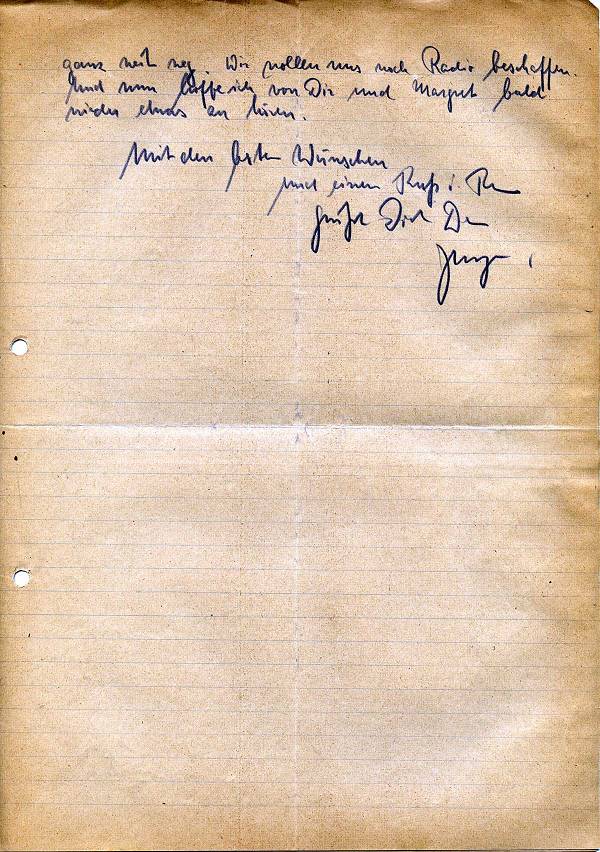 ganz weit weg. Wir wollen uns noch Radio beschaffen.
Und nun hoffe ich von Dir und Margret bald
wieder etwas zu hören.
Mit den besten Wünschen
und einem
grüßt Dich Dein